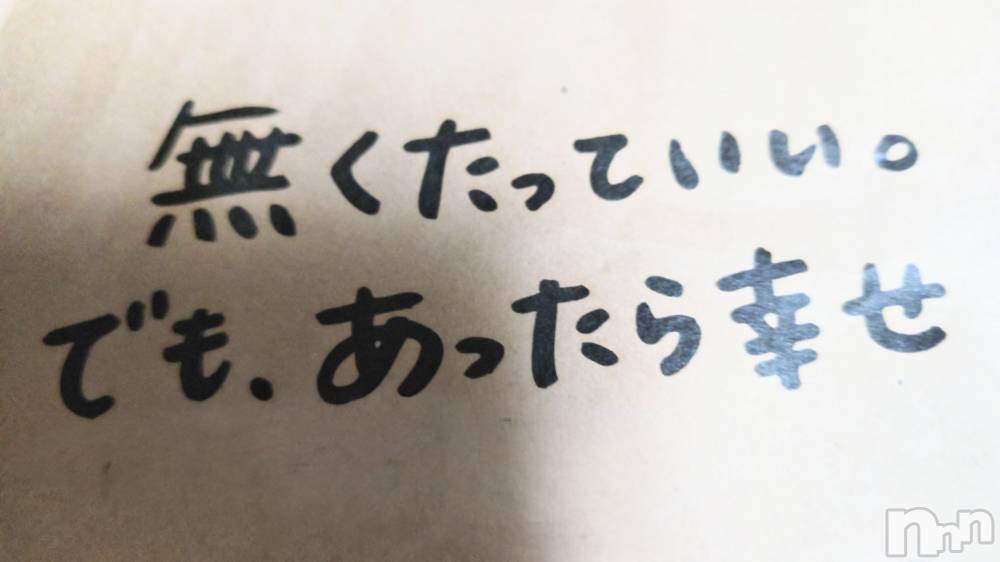 無くたっていい。
でも、あったら幸せ
nnn